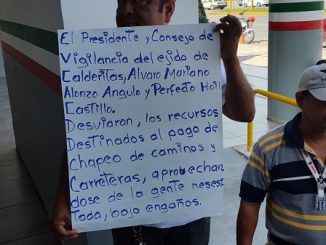 El Presidente y Consejo de
Vigilancia del ejido de
Calderitas, Alvaro Mariano
Alonzo Angulo y Perfecto Holl
Castillo.
Desviaron, los recursos
Destinados al pago de
Chapeo de caminos y
Carreteras, aprobechan
dose de la gente neseci
Tada, bajo engaños.